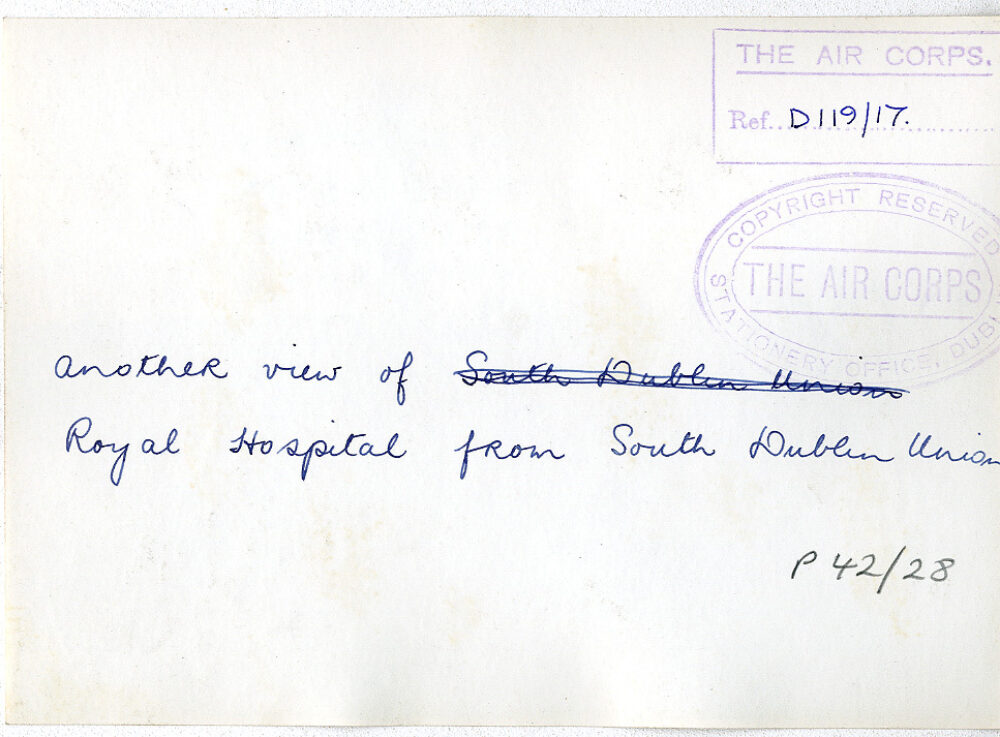 THE AIR CORPS.
Ref. D119/17.
COPYRIGHT RESERVED
THE AIR CORPS
STATIONERY OFFICE, DUBL
another view of ~~South Dublin Union~~
Royal Hospital from South Dublin Union
P 42/28